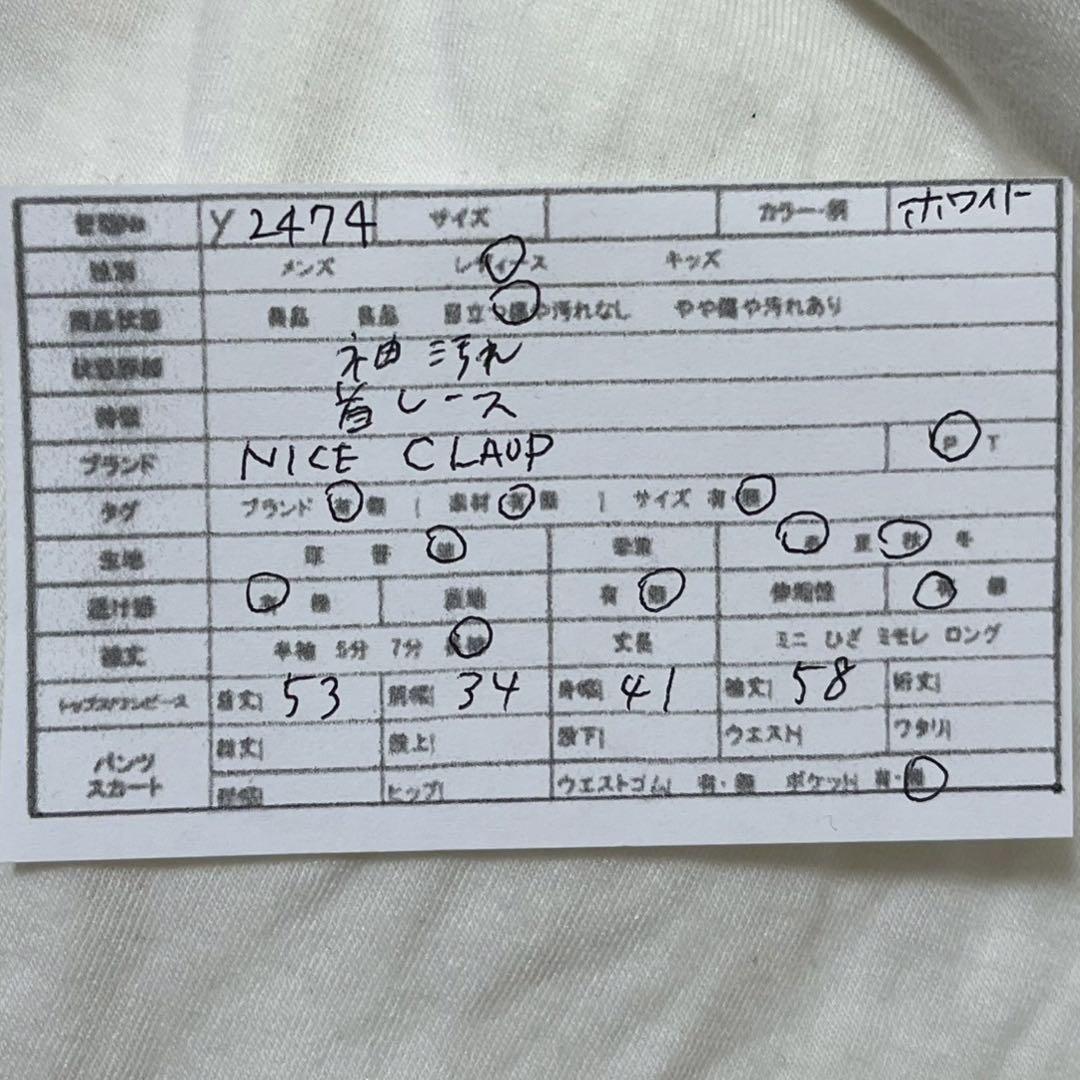 管理No Y2474 サイズ カラー・柄 ホワイト
性別 メンズ レディース キッズ
商品状態 美品 良品 目立つ傷や汚れなし やや傷や汚れあり
状態詳細 袖汚れ
特徴 首レース
ブランド NICE CLAUP P T
タグ ブランド 有 無 | 素材 有 無 | サイズ 有・無
生地 厚 普 薄 季節 春 夏 秋 冬
透け感 有 無 裏地 有 無 伸縮性 有 無
袖丈 半袖 5分 7分 長袖 丈長 ミニ ひざ ミモレ ロング
トップス/ワンピース 着丈| 53 肩幅| 34 身幅| 41 袖丈| 58 裄丈|
パンツ スカート 総丈| 股上| 股下| ウエスト| ワタリ|
裾幅| ヒップ| ウエストゴム| 有・無 ポケット| 有・無